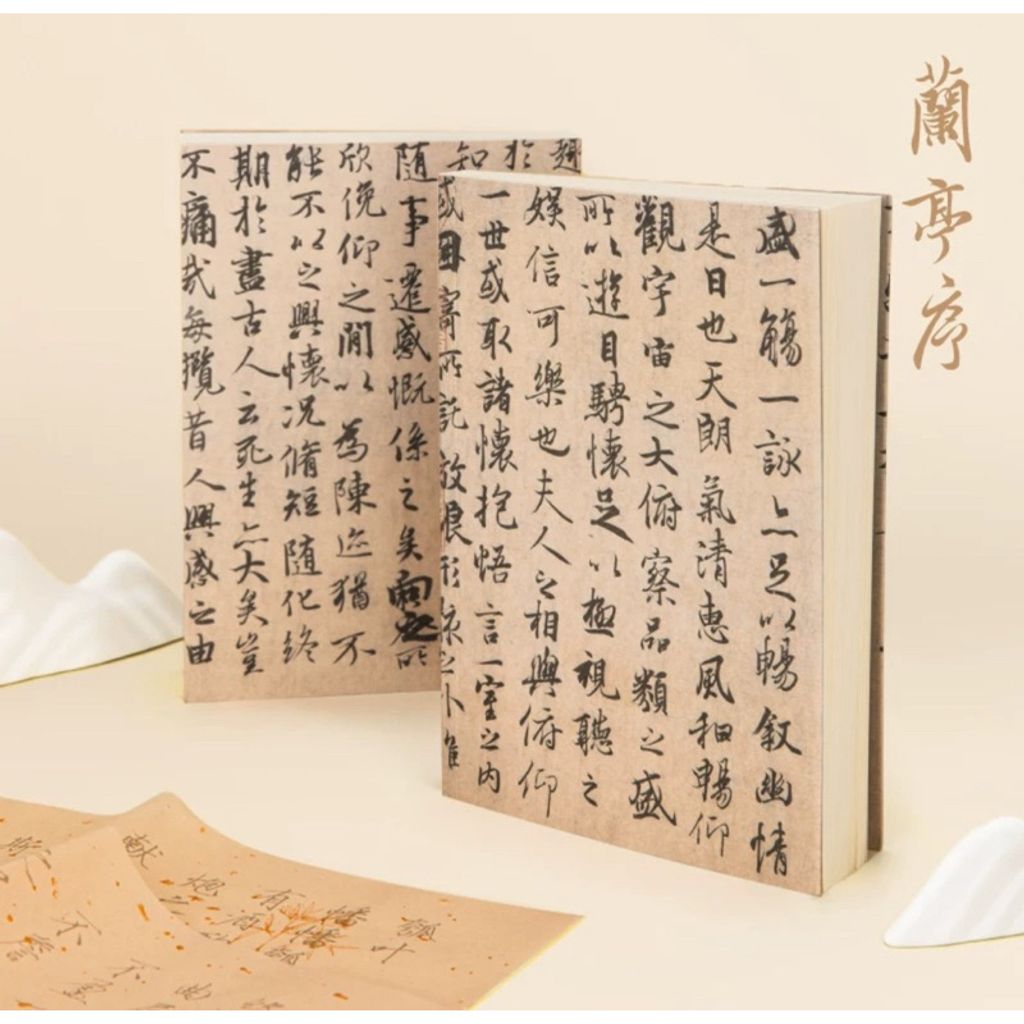 蘭亭序
盛一觴一詠亦足以暢叙幽情
是日也天朗氣清惠風和暢仰
觀宇宙之大俯察品類之盛
所以遊目騁懷足以極視聽之
娛信可樂也夫人之相與俯仰
一世或取諸懷抱悟言一室之內
或因寄所託放浪形骸之外雖
趣
於
知
隨事遷感慨係之矣向之所
欣俛仰之閒以為陳迹猶不
能不以之興懷況脩短隨化終
期於盡古人云死生亦大矣豈
不痛哉每攬昔人興感之由